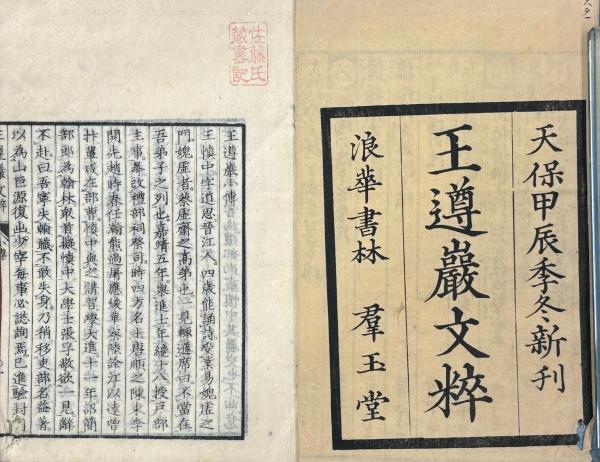 天保甲辰季冬新刊
王遵巖文粹
浪華書林　羣玉堂
佐藤氏
藏書記
王遵巖小傳
王愼中字道思晉江人四歲能誦詩受業易媿虛之
門媿虛者蔡虛齋之高弟也一見輙遜席曰不當在
吾弟子之列也嘉靖五年舉進士年纔十八授戶部
主事尋改禮部祠祭司時四方名士唐順之陳束李
開先趙時春任瀚熊過屠應埈華察陸詮江以達曾
忭輩咸在部曹愼中與之講習學大進十一年詔簡
部郎爲翰林衆首擬愼中大學士張孚敬欲一見辭
不赴曰吾寧失翰職不敢失身乃稍移吏部名益著
以爲山巨源復出少宰每事必諮詢焉已進驗封
王遵巖文粹